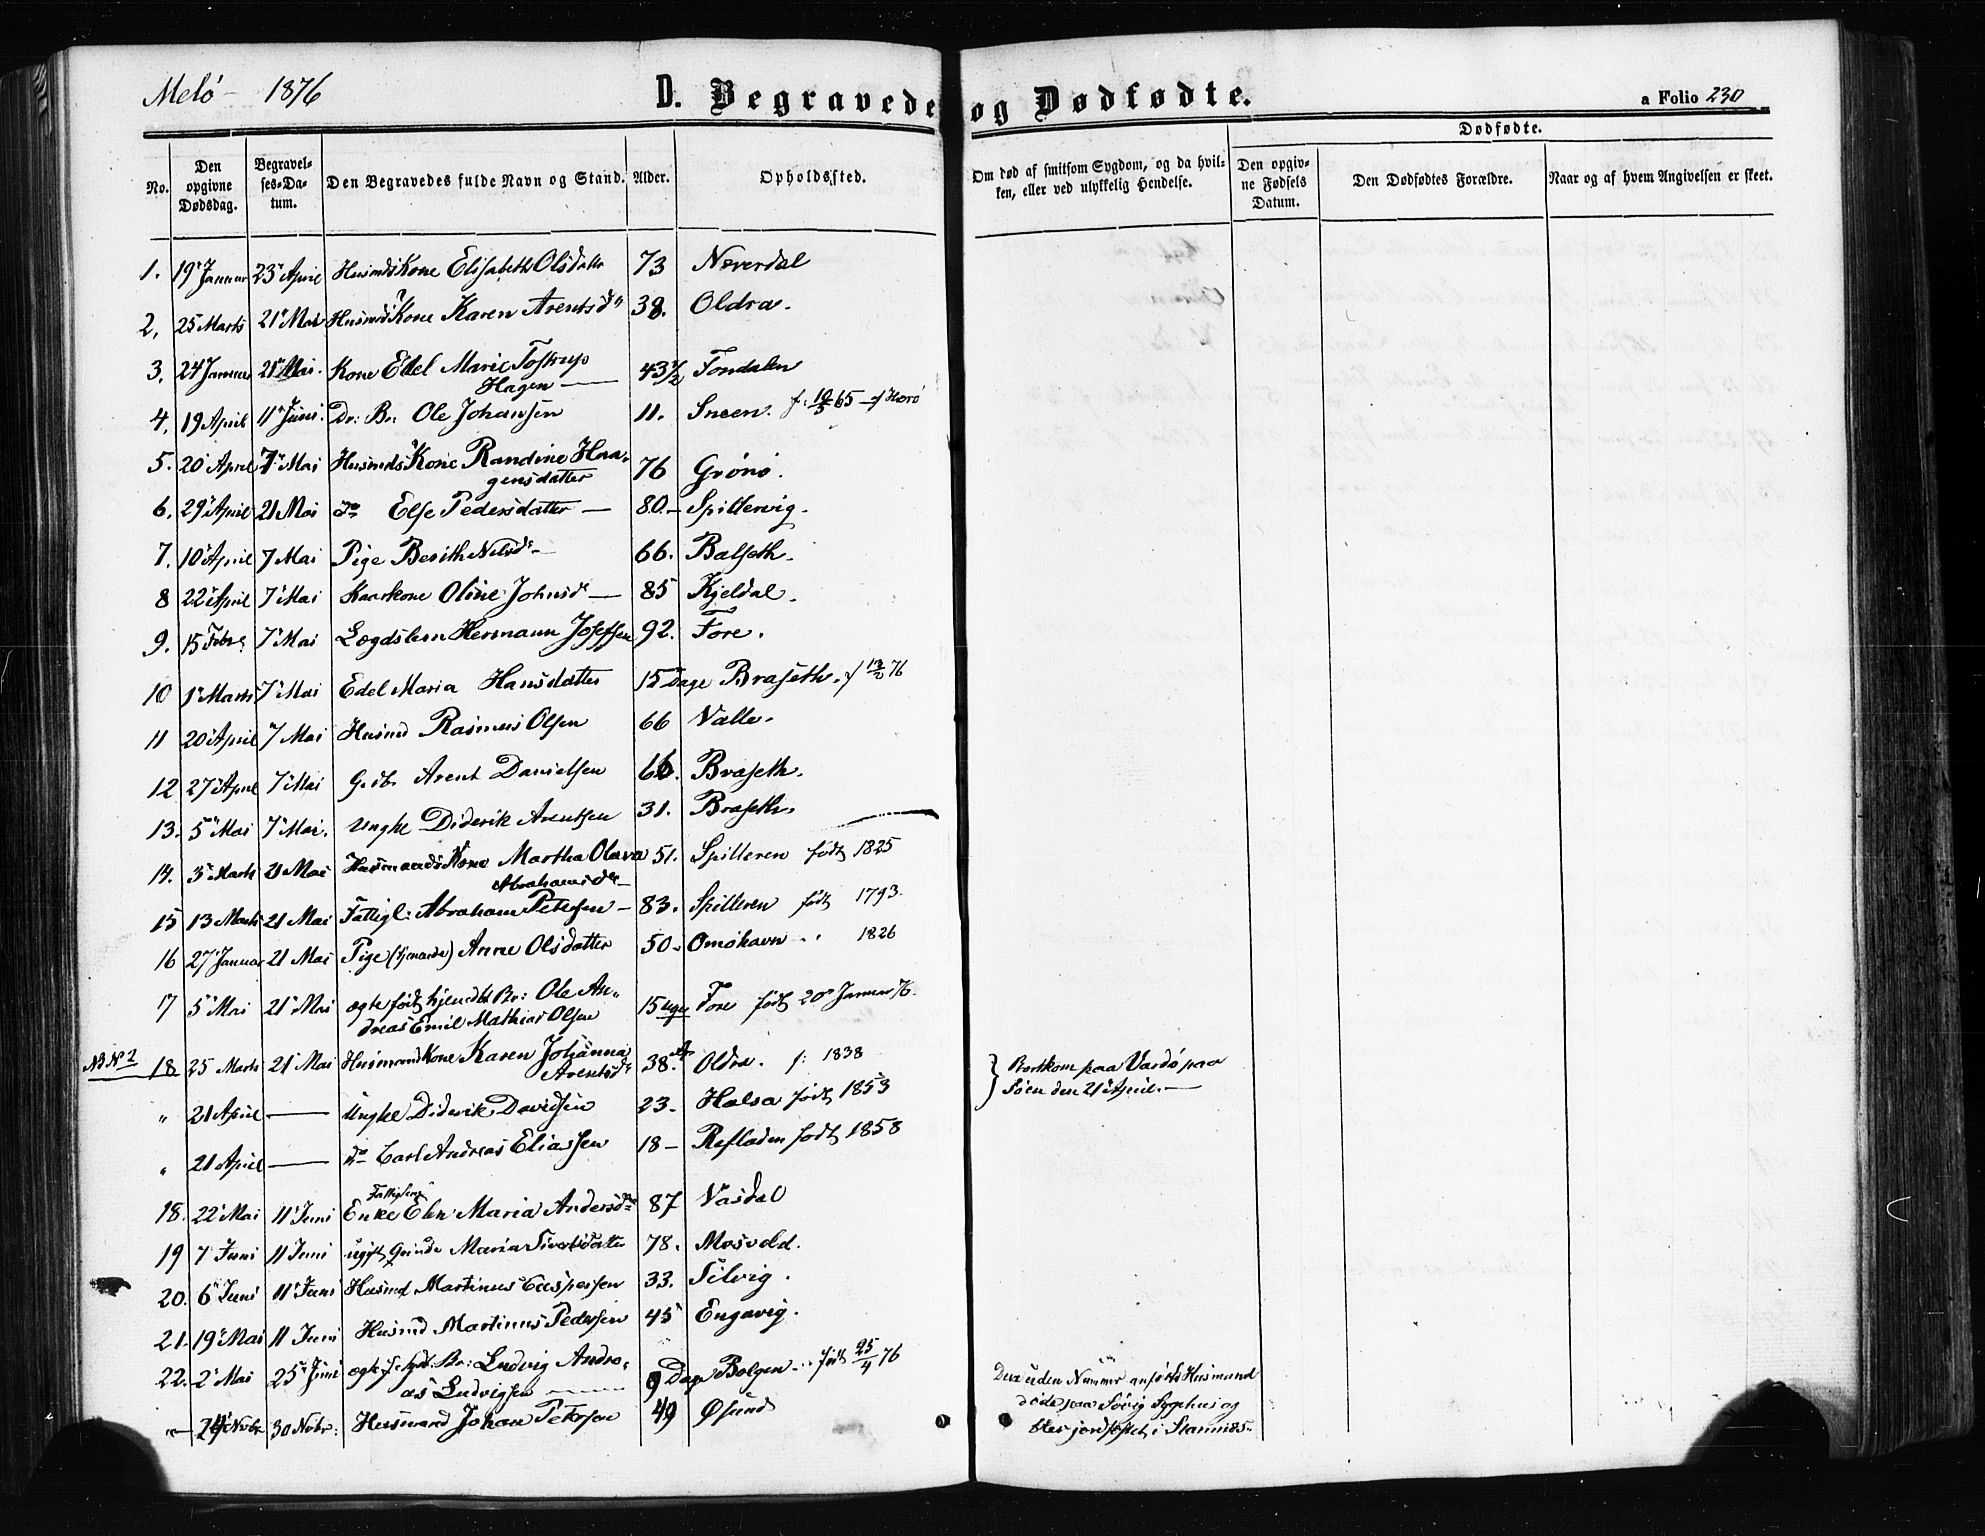 Melö 1876
D. Begravede og Dødfødte.
a Folio 230
Dødfødte.
No.
Den opgivne Dødsdag.
Begravelses-Datum.
Den Begravedes fulde Navn og Stand.
Alder.
Opholdssted.
Om død af smitsom Sygdom, og da hvilken, eller ved ulykkelig Hendelse.
Den opgivne Fødsels Datum.
Den Dødfødtes Forældre.
Naar og af hvem Angivelsen er skeet.
1. 19 Januar 23 April Husmds Kone Elisabeth Olsdatter 73 Neverdal
2. 25 Marts 21 Mai Husmds Kone Karen Arentsd 38. Oldra.
3. 24 Januar 21 Mai. Kone Edel Marie Tostrup
Hagen 43 1/2 Fondalen
4. 19 April 11 Juni. Dr: Br: Ole Johansen 11. Sneen. f. 19/5 65
5. 20 April 7 Mai Husmds Kone Randine Haa-
gensdatter 76 Grönö.
6. 29 April 21 Mai do Else Pedersdatter 80. Spillervig.
7. 10 April 7 Mai Pige Berith Nilsd 66. Balseth.
8 22 April 7 Mai Kaarkone Oline Johnsd 85 Kjeldal.
9. 15 Febr: 7 Mai Lægdslem Hermann Josefsen 92. Fore.
10 1 Marts 7 Mai Edel Maria Hansdatter 15 Dage Braseth. f 13/2 76
11 20 April 7 Mai Husmd Rasmus Olsen 66 Valle.
12 27 April 7 Mai Gdbr. Arent Danielsen 66. Braseth.
13. 5 Mai 7 Mai. Ungke Diderik Arentsen 31. Braseth.
14. 3 Marts 21 Mai Husmands Kone Martha Olava
Abrahamsdr 51. Spilleren født 1825
15 13 Marts 21 Mai Fattigl: Abraham Petersen 83. Spilleren født 1793.
16 27 Januar 21 Mai Pige (tjenende) Anne Olsdatter 50 Omöhavn " 1826
17 5 Mai 21 Mai ægte født hjemdbt Br: Ole An-
dreas Emil Mathias Olsen 15 Uger Fore født 20 Januar 76.
NB No 2 18 25 Marts 21 Mai Husmand Kone Karen Johanna
Arentsd 38. Oldra. f: 1838
" 21 April — Ungke Diderik Davidsen 23. Halsa født 1853
Bortkom paa Vardö paa
Söen den 21 April.
" 21 April — do Carl Andreas Eliassen 18 Refladen født 1858
18. 22 Mai 11 Juni Fattiglem
Enke Elen Maria Andersdr 87 Vasdal
19 7 Juni 11 Juni ugift Qvinde Maria Sivertsdatter 78. Mosvold.
20. 6 Juni 11 Juni Husmd Martinus Caspersen 33. Selvig.
21. 19 Mai 11 Juni Husmd Martinus Pedersen 45 Engavig.
22. 2 Mai 25 Juni ægte f. hjdt. Br: Ludvig Andre-
as Ludvigsen 9 Dage Bolgen født 25/4 76
" 24 Novbr 30 Nvbr: Husmand Johan Petersen 49 Øsund
Den uden Nummer anførte Husmand
döde paa Sövig Sygehus og
blev jordfæstet i Stamnæs